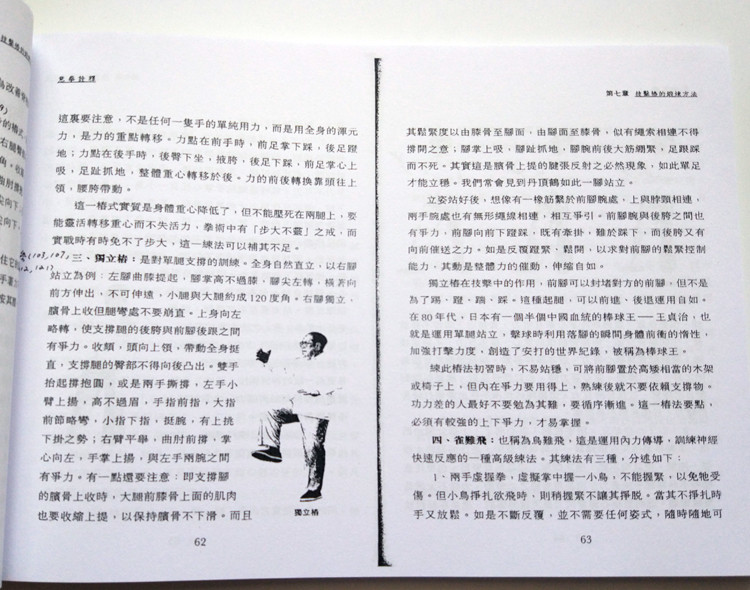 意拳詮釋
這裏要注意，不是任何一隻手的單純用力，而是用全身的渾元
力，是力的重點轉移。力點在前手時，前足掌下踩，後足蹬
地；力點在後手時，後臀下坐，掖胯，後足下踩，前足掌心上
吸，足趾抓地，整體重心轉移於後。力的前後轉換靠頭往上
領，腰胯帶動。
這一樁式實質是身體重心降低了，但不能壓死在兩腿上，要
能靈活轉移重心而不失活力，拳術中有「步大不靈」之戒，而
實戰時有時免不了步大，這一練法可以補其不足。
三、獨立樁：是對單腿支撐的訓練。全身自然直立，以右腳
站立為例：左腳曲膝提起，腳掌高不過膝，腳尖左轉，橫著向
前方伸出，不可伸遠，小腿與大腿約成120度角。右腳獨立，
臏骨上收但腿彎處不要崩直。上身向左
略轉，使支撐腿的後胯與前腳後跟之間
有爭力。收頦，頭向上領，帶動全身挺
直，支撐腿的臀部不得向後凸出。雙手
抬起撐抱圓，或是兩手撕撐，左手小
臂上揚，高不過眉，手指前指，大指
前節略彎，小指下指，挺腕，有上挑
下掛之勢；右臂平舉，曲肘前撐，掌
心向左，手掌上揚，與左手兩腕之間
有爭力。有一點還要注意：即支撐腳
的臏骨上收時，大腿前膝骨上面的肌肉
也要收縮上提，以保持臏骨不下滑。而且
獨立樁
62
第七章 技擊樁的鍛練方法
其鬆緊度以由膝骨至腳面，由腳面至膝骨，似有繩索相連不得
撐開之意；腳掌上吸，腳趾抓地，腳腕前後大筋繃緊，足跟踩
而不死。其實這是臏骨上提的腱張反射之必然現象，如此單足
才能立穩。我們常會見到丹頂鶴如此一腳站立。
立姿站好後，想像有一橡筋繫於前腳腕處，上與脖頸相連，
兩手腕處也有無形繩線相連，相互爭引。前腳腕與後胯之間也
有爭力，前腳向前下蹬踩，既有牽掛，難於踩下，而後胯又有
向前催送之力。如是反覆蹬緊、鬆開，以求對前腳的鬆緊控制
能力，其動是整體力的催動，伸縮自如。
獨立樁在技擊中的作用，前腳可以封堵對方的前腳，但不是
為了踢、蹬、踹、踩。這種起腿，可以前進、後退運用自如。
在80年代，日本有一個半個中國血統的棒球王──王貞治，也
就是運用單腿站立，擊球時利用落腳的瞬間身體前衝的惰性，
加強打擊力度，創造了安打的世界紀錄，被稱為棒球王。
練此樁法初習時，不易站穩，可將前腳置於高矮相當的木架
或椅子上，但內在爭力要用得上，熟練後就不要依賴支撐物。
功力差的人最好不要勉為其難，要循序漸進。這一樁法要點，
必須有較強的上下爭力，才易掌握。
四、雀難飛：也稱為鳥難飛，這是運用內力傳導，訓練神經
快速反應的一種高級練法。其練法有三種，分述如下：
1、兩手虛握拳，虛擬掌中握一小鳥，不能握緊，以免牠受
傷。但小鳥掙扎欲飛時，則稍握緊不讓其掙脫。當其不掙扎時
手又放鬆。如是不斷反覆，並不需要任何姿式，隨時隨地可
63